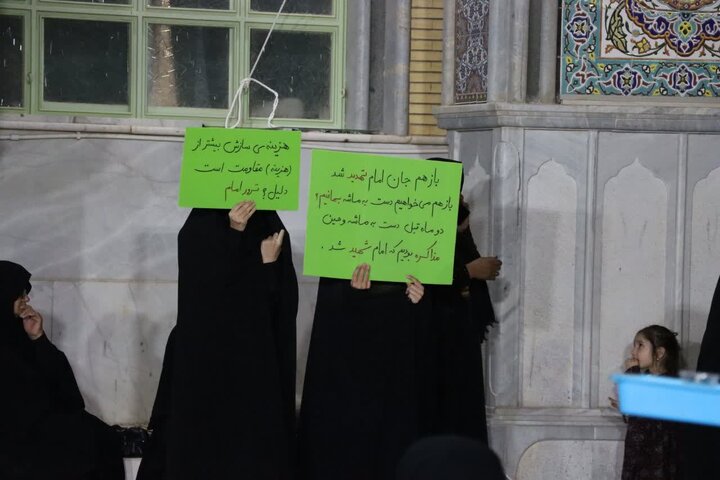 هزینه‌ی سازش بیشتر از
(هزینه) مقاومت است
دلیل؟ ترور امام
باز هم جان امام تهدید شد
باز هم می‌خواهیم دست به ماشه بمانیم؟
دو ماه قبل دست به ماشه و حین
مذاکره بودیم که امام شهید شد.